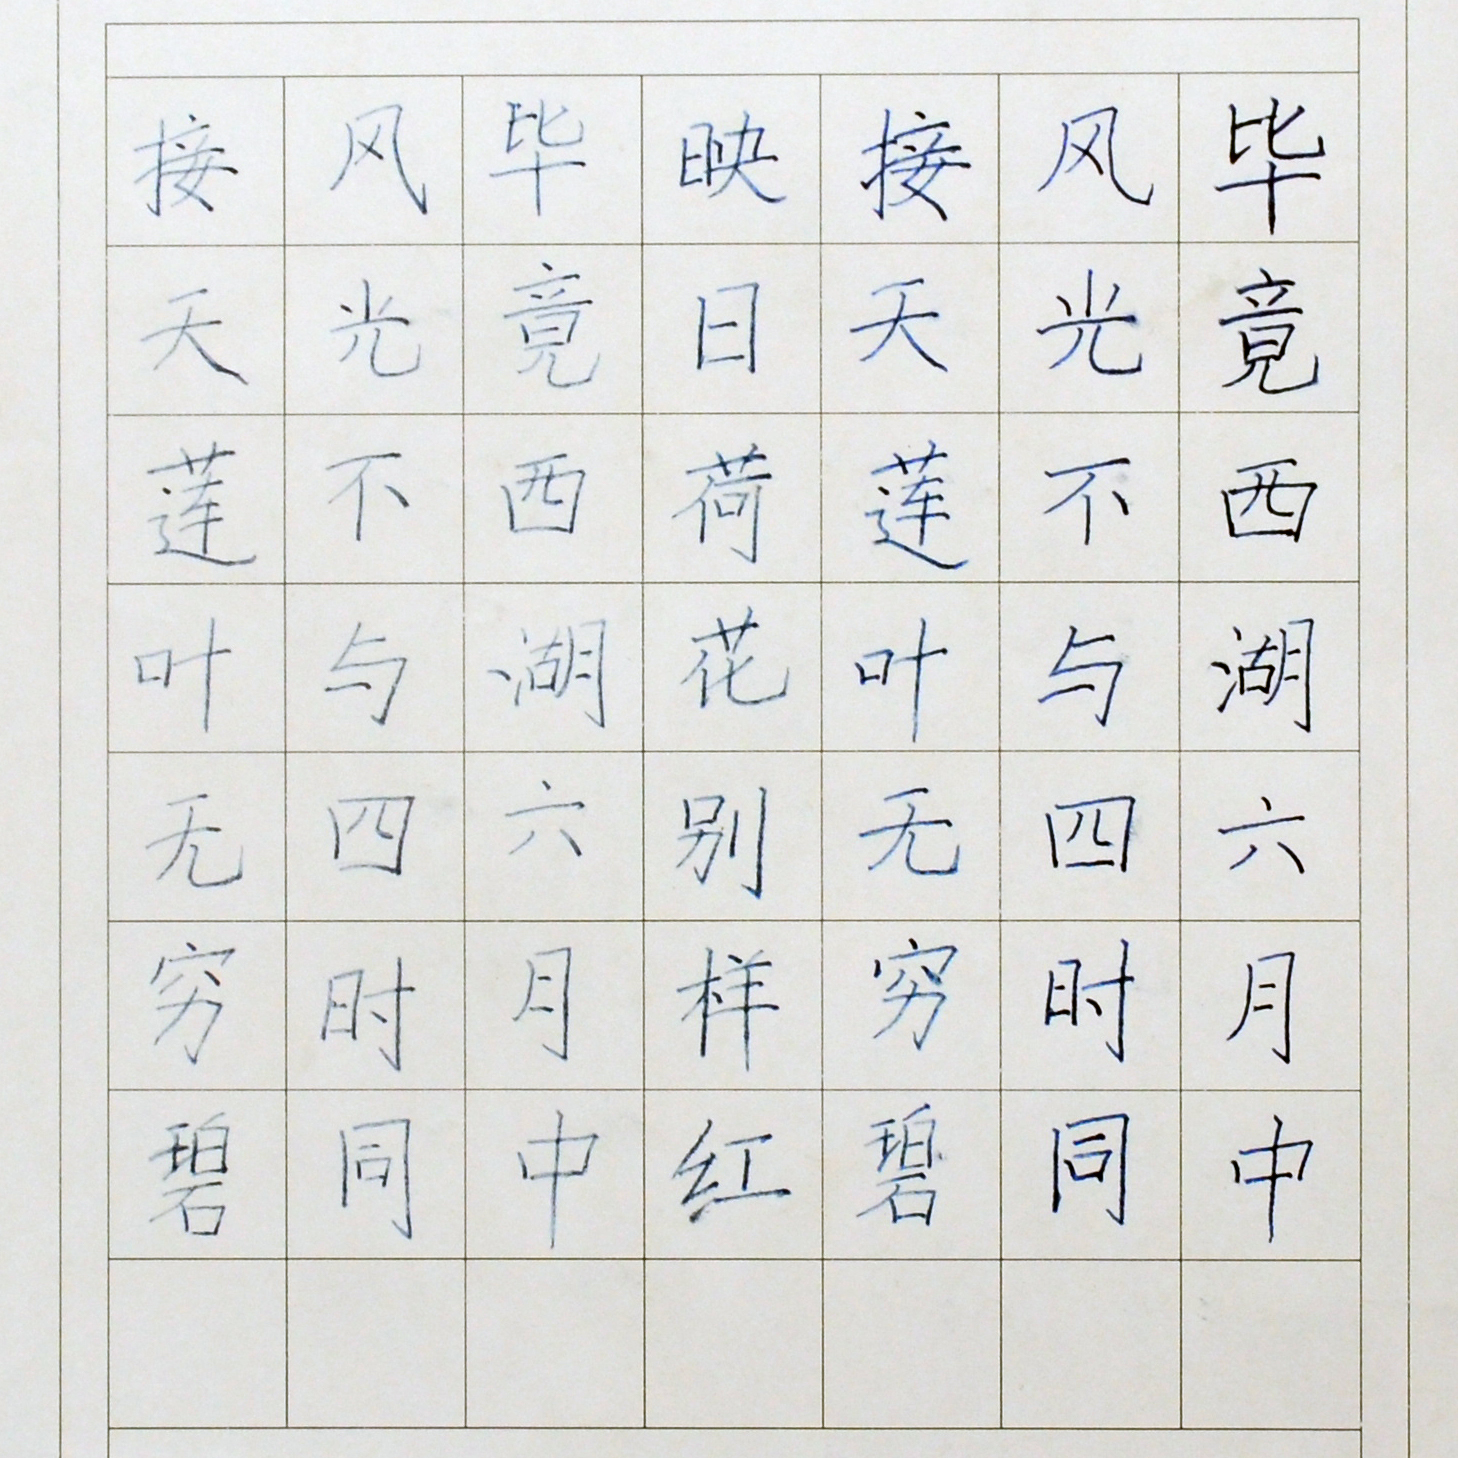 毕竟西湖六月中
风光不与四时同
接天莲叶无穷碧
映日荷花别样红
毕竟西湖六月中
风光不与四时同
接天莲叶无穷碧